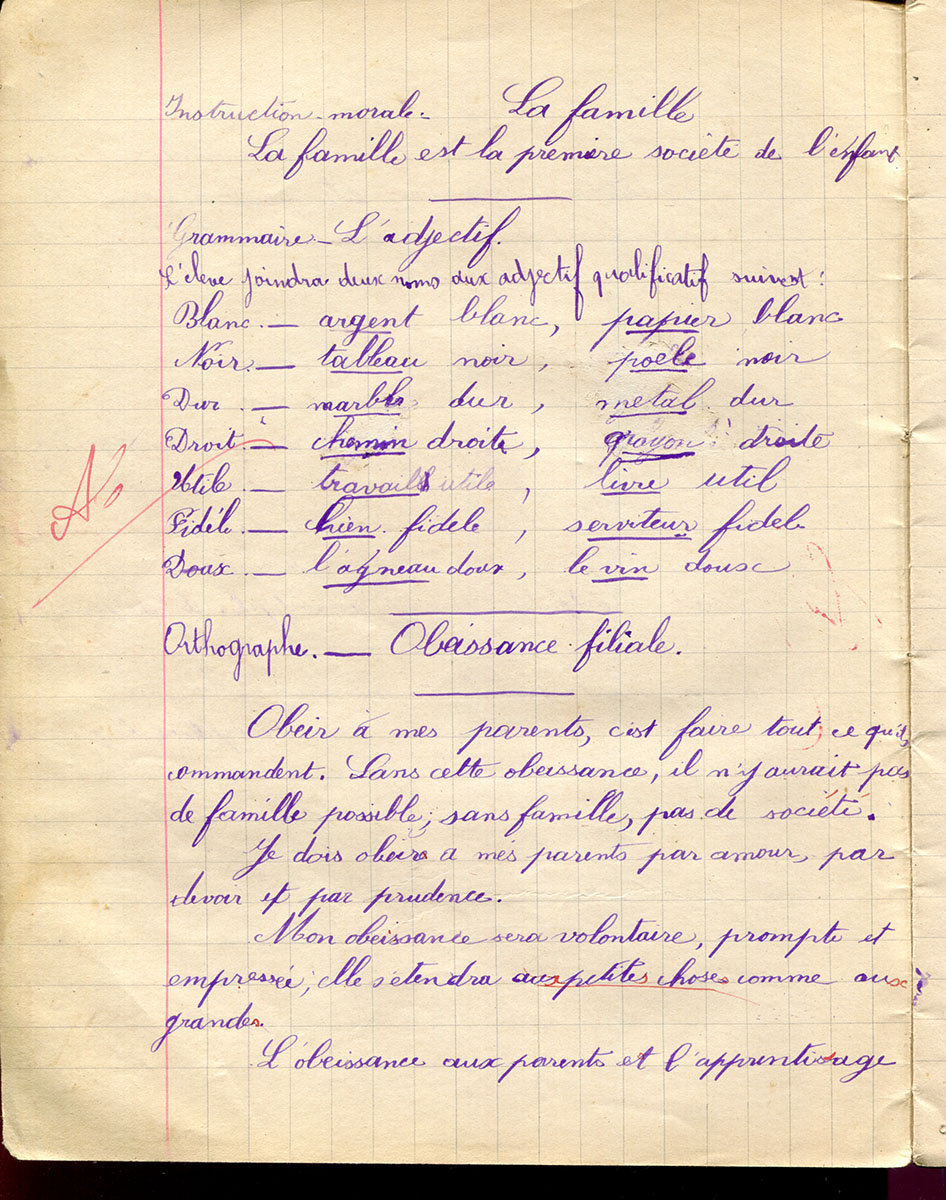 Instruction - morale - La famille
La famille est la premiere société de l'enfant
Grammaire - L'adjectif.
L'éleve joindra deux noms aux adjectif qualificatif suivent :
Blanc. — argent blanc, papier blanc
Noir. — tableau noir, poele noir
Dur. — marbre dur, metal dur
Droit. — chemin droite, droite
Utile. — travail utile, livre util
Fidéle — chien fidele, serviteur fidele
Doux. — l'agneau doux, le vin doux
Orthographe. — Obeissance filiale.
Obeir à mes parents, c'est faire tout ce qu'il
commandent. Sans cette obeissance, il n'y aurait pas
de famille possible; sans famille, pas de société.
Je dois obeir a més parents par amour, par
devoir et par prudence.
Mon obeissance sera volontaire, prompte et
empressée; elle s'etendra aux petites choses comme aux
grandes.
L'obeissance aux parents et l'apprentisage